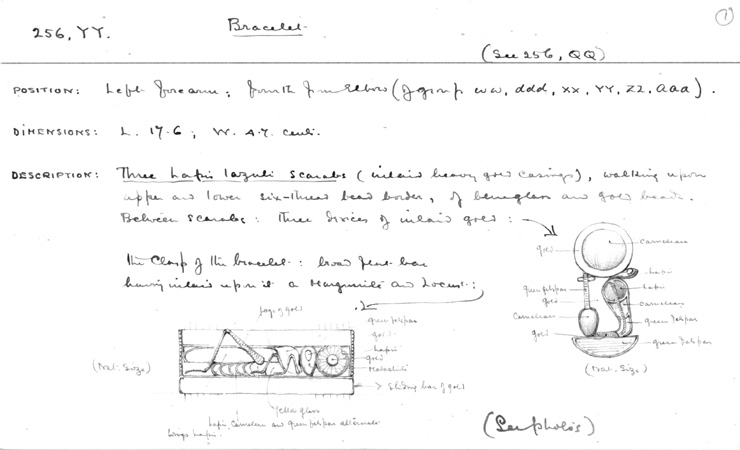 1
256, YY.
Bracelet.
(See 256, QQ)
POSITION: Left forearm; fourth from Elbow (of group ww, ddd, xx, YY, ZZ, aaa).
DIMENSIONS: L. 17.6; W. 4.7. centi.
DESCRIPTION: Three Lapis lazuli scarabs (inlaid heavy gold casings), walking upon
upper and lower six-thread bead border, of blue glass and gold beads.
Between scarabs: three devices of inlaid gold:
The Clasp of the bracelet: broad flat bar
having inlaid upon it a Marguerite and Locust:
gold
carnelian
lapis
green felspar
lapis
gold
carnelian
Carnelian
green felspar
gold
green felspar
(Nat. Size)
of gold
green felspar
gold
lapis
gold
Malachite
(Nat. Size)
sliding bar of gold
Yellow glass
lapis, Carnelian and green felspar alternate
wings lapis.
(See photos)